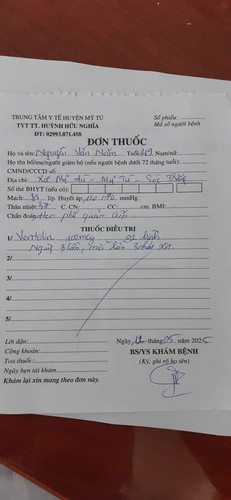 TRUNG TÂM Y TẾ HUYỆN MỸ TÚ
TYT TT. HUỲNH HỮU NGHĨA
ĐT: 02993.871.458
Số phiếu:
Mã số người bệnh
ĐƠN THUỐC
Họ và tên: Nguyễn Văn Năm Tuổi: 49 Nam/nữ:
Họ tên bố/mẹ/người giám hộ (nếu người bệnh dưới 72 tháng tuổi):
CMND/CCCD số:
Địa chỉ: Xã Mỹ Tú - Mỹ Tú - Sóc Trăng
Số thẻ BHYT (nếu có):
Mạch: l/p. Huyết áp: mmHg.
Thân nhiệt 37 C. CN: CC: cm. BMI:
Chẩn đoán: Hen phế quản
THUỐC ĐIỀU TRỊ
1/ Ventolin 100mcg 01
Ngày 3 lần, mỗi lần 2 nhát xịt
2/
3/
4/
5/
Lời dặn:
Cộng khoản:
Toa thuốc:
Ngày hẹn tái khám:
Khám lại xin mang theo đơn này.
Ngày tháng 05 năm 2025
BS/YS KHÁM BỆNH
(Ký, ghi rõ họ tên)